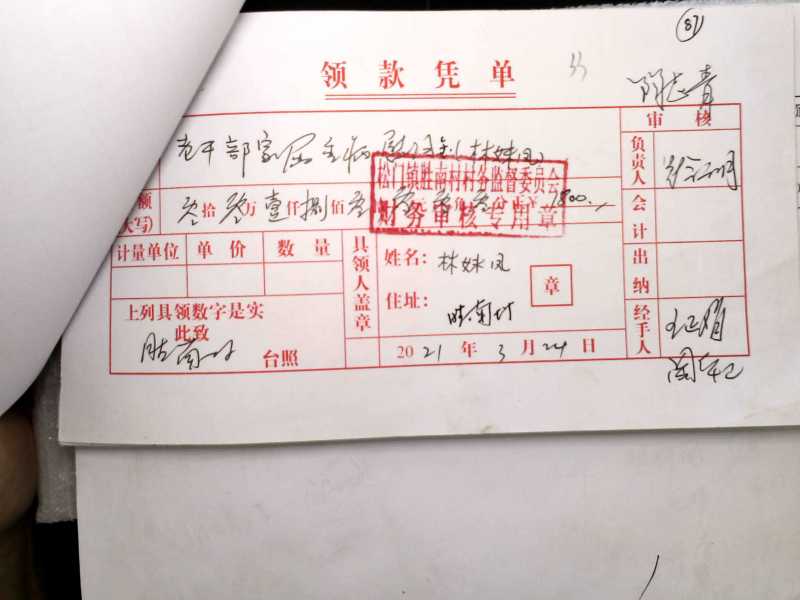 87
领款凭单
审核
老干部家属生病慰问金(林妹凤)
松门镇胜南村村务监督委员会
财务审核专用章
额
大写)
零拾零万壹仟捌佰零 1800.
负责人
会计
计量单位 单价 数量
具领人盖章
姓名: 林妹凤
章
住址: 胜南村
出纳
上列具领数字是实
此致
胜南村 台照
2021年3月24日
经手人